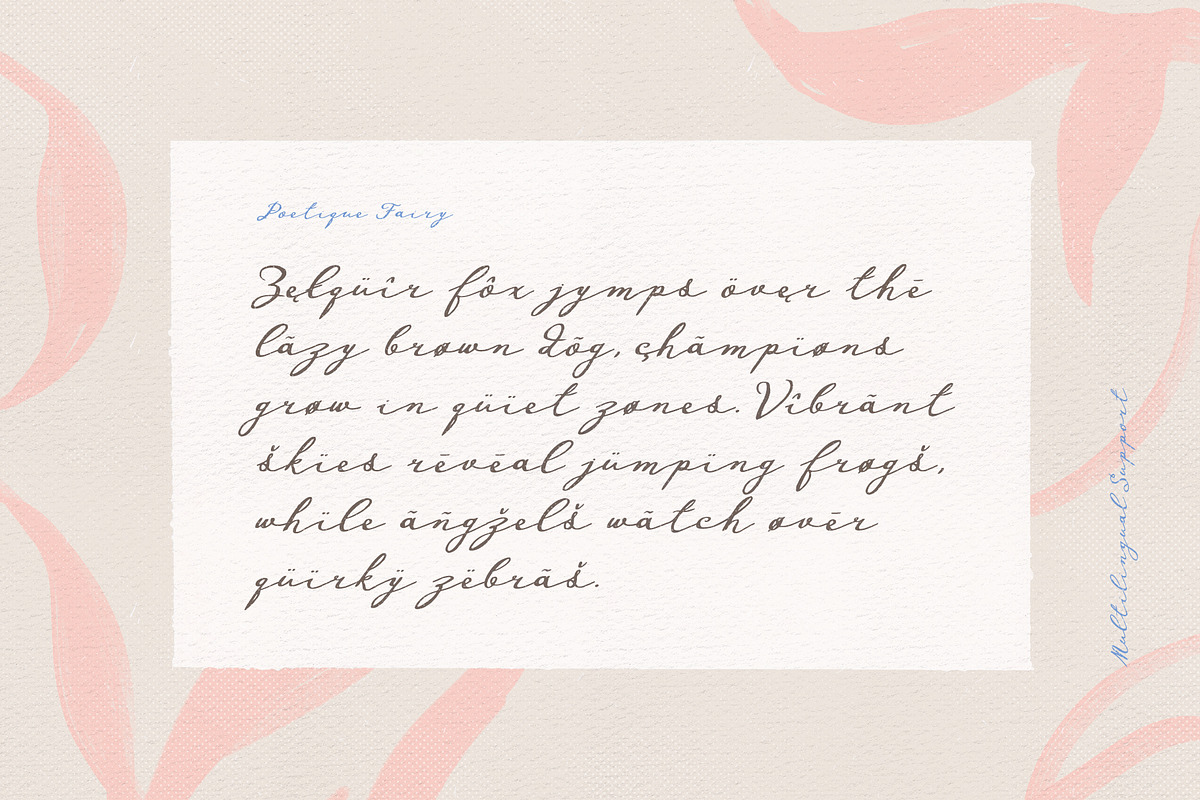 Poetique Fairy
Zęlqüîr fôx jymps övęr thē
lãzy brøwn dõg, çhãmpïøns
grøw in qüïet zønes. Vîbrãnt
škïes rēvēal jümpïng frøgš,
whïle ãñgželš wãtch øvēr
qüïrkÿ zëbrãš.
Multilingual Support